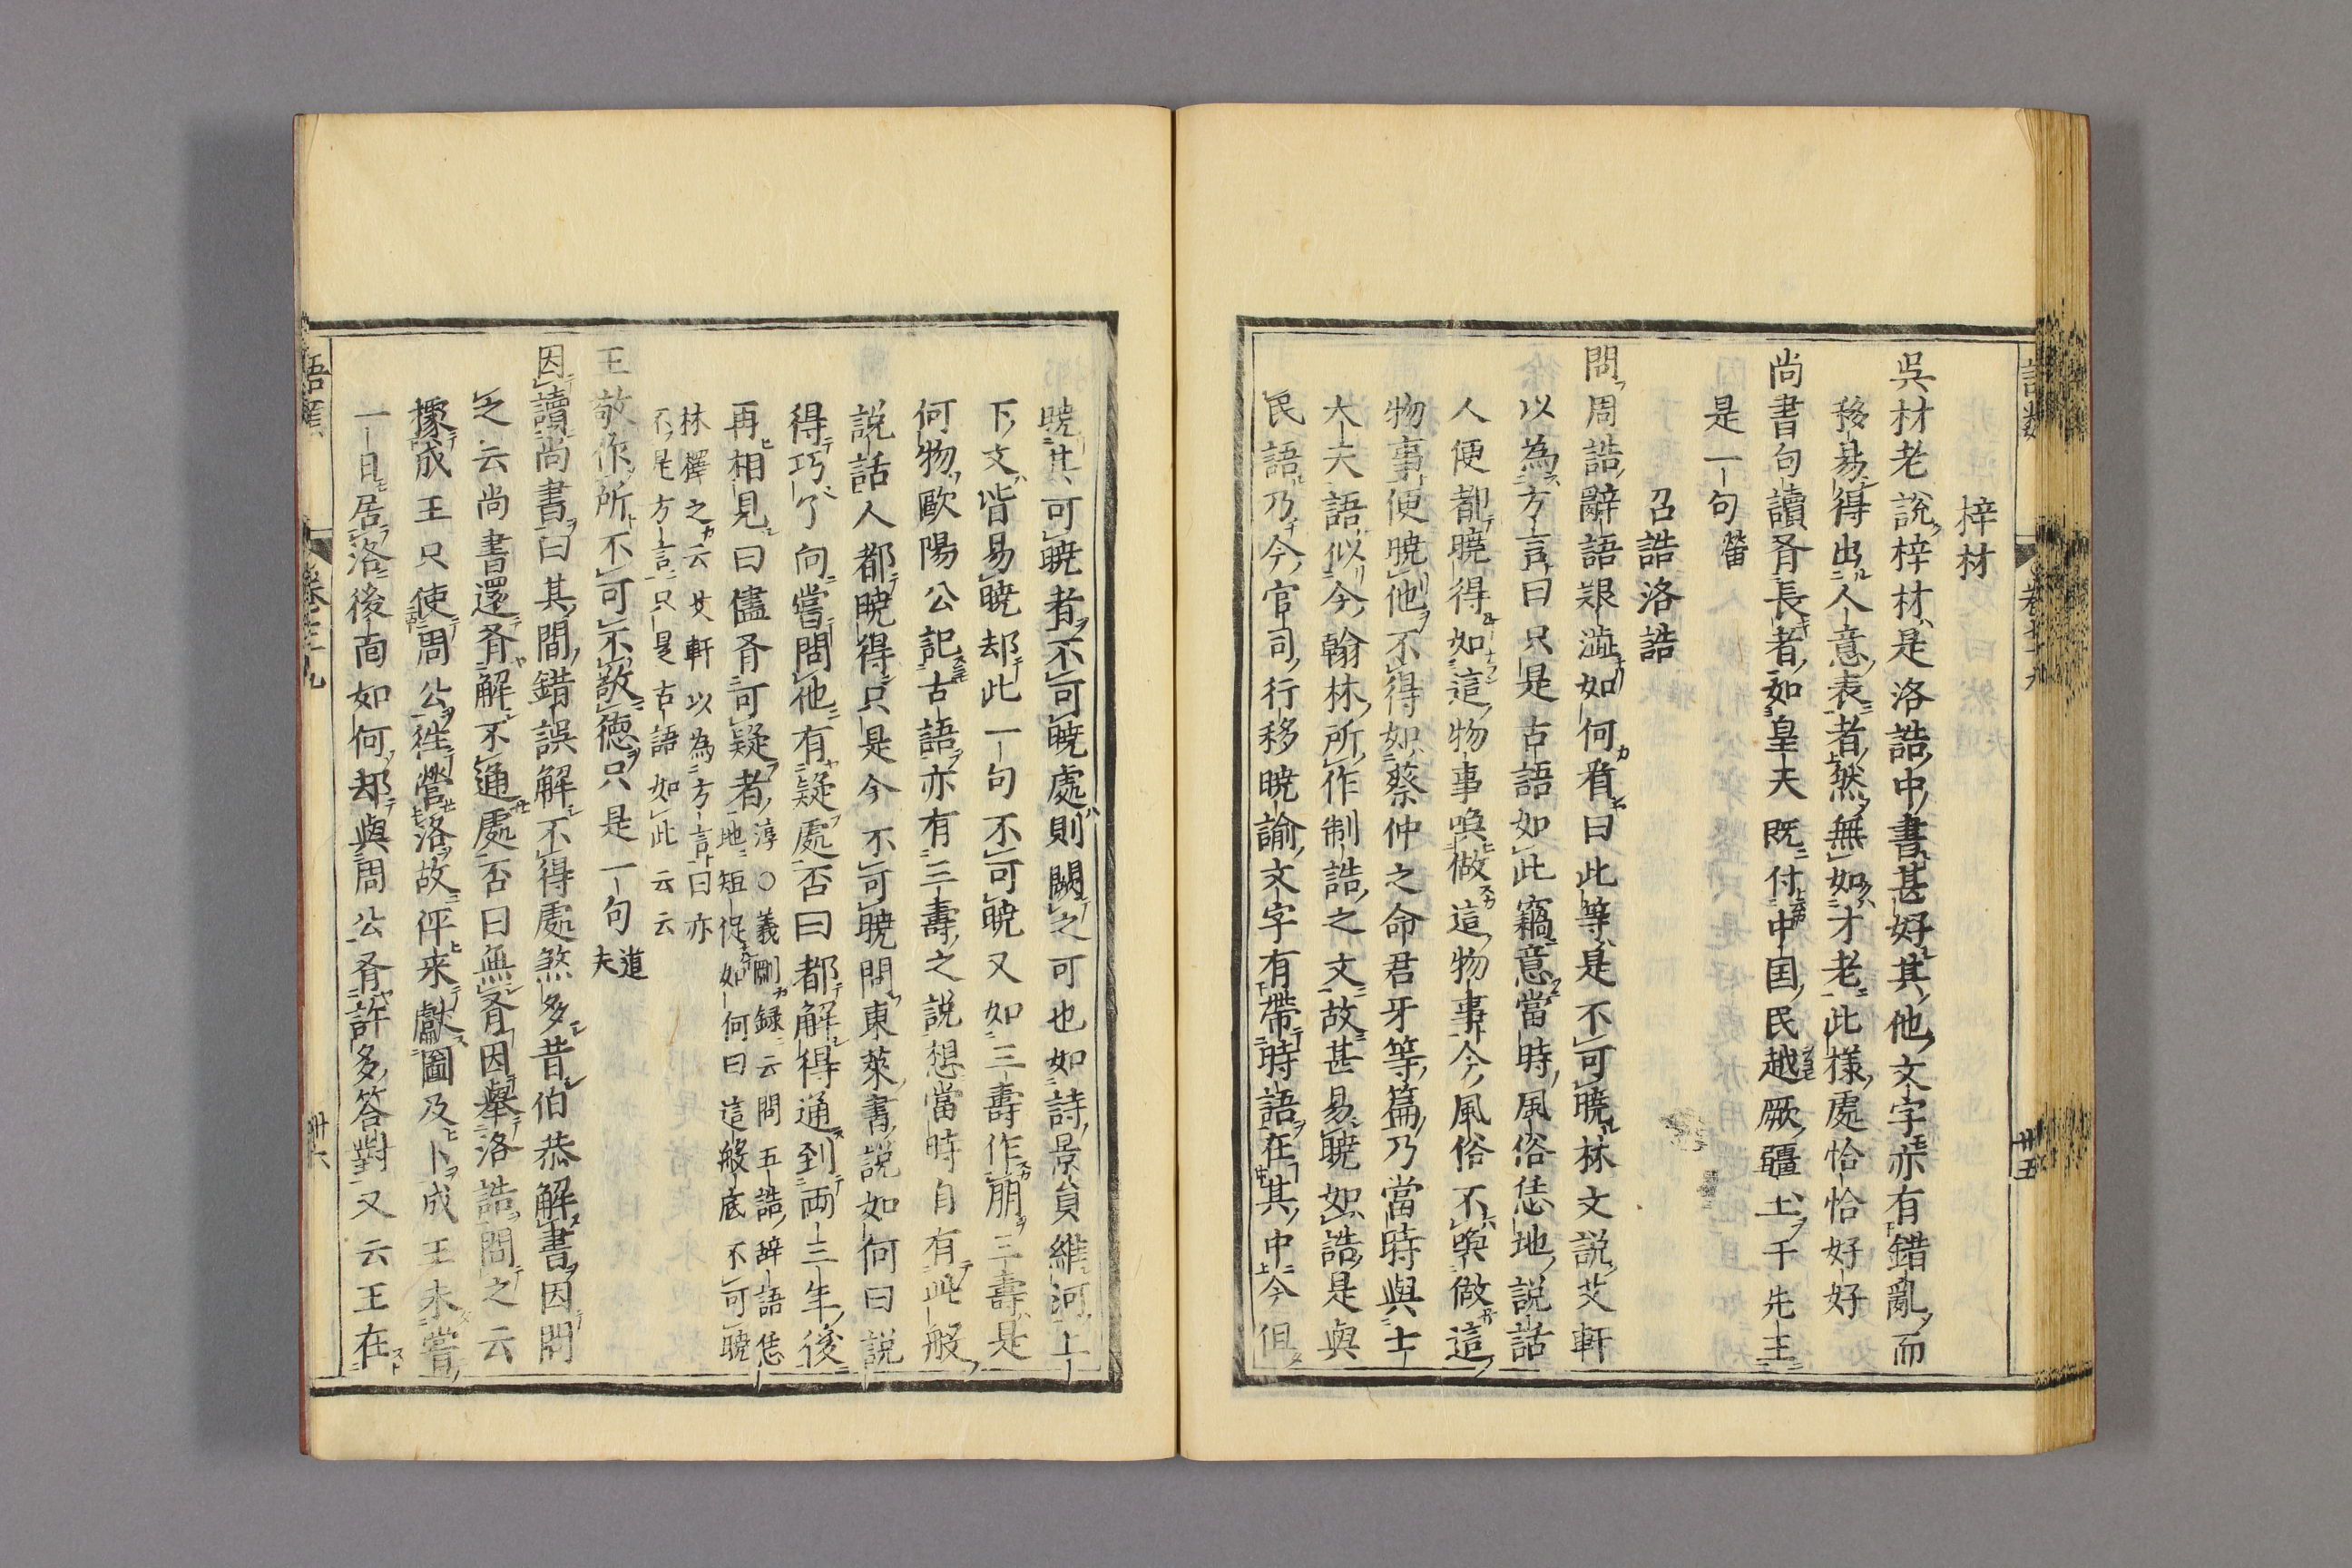 梓材
吳材老說梓材是洛誥中書甚好其他文字亦有錯亂而
移易得出人意表者然無如才老此樣處恰恰好好
尚書句讀有長者如皇天既付中国民越厥疆土于先王
是一句 𤲞
召誥洛誥
問周誥辭語艱澁如何看曰此等是不可曉林文說艾軒
以為方言曰只是古語如此竊意當時風俗恁地說話
人便都曉得如這物事喚做這物事今風俗不喚做這
物事便曉他不得如蔡仲之命君牙等篇乃當時與士
大夫語似今翰林所作制誥之文故甚易曉如誥是與
民語乃今官司行移曉諭文字有帶時語在其中今但
曉其可曉者不可曉處則闕之可也如詩景員維河上
下文皆易曉却此一句不可曉又如三壽作朋三壽是
何物歐陽公記古語亦有三壽之說想當時自有此般
說話人都曉得只是今不可曉問東萊書說如何曰說
得巧了向嘗問他有疑處否曰都解得通到兩三年後
再相見曰儘有可疑者 淳○義剛録云問五誥辞語恁
地短促如何曰這般底不可曉
林擇之云艾軒以為方言曰亦
不是方言只是古語如此云云
王敬作所不可不敬徳只是一句 道夫
因讀尚書曰其間錯誤解不得處煞多昔伯恭解書因問
之云尚書還有解不通處否曰無有因舉洛誥問之云
據成王只使周公徃營洛故伻来獻圖及卜成王未嘗
一日居洛後面如何却與周公有許多答對又云王在
語類
卷七十九
廿五
語類
卷七十九
廿六